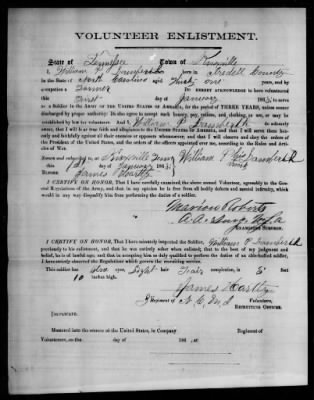 VOLUNTEER ENLISTMENT.
State of Tennessee Town of Knoxville
I, William P. born in Iredell County
in the State of North Carolina aged Thirty one years, and by
occupation a Farmer Do HEREBY ACKNOWLEDGE to have volunteered
this First day of January 186
as a Soldier in the Army OF THE UNITED STATES OF AMERICA, for the period of THREE YEARS, unless sooner
discharged by proper authority: Do also agree to accept such bounty, pay, rations, and clothing, as are, or may be,
established by law for volunteers. And I, William P. do solemnly swear,
that I will bear true faith and allegiance to the UNITED STATES OF AMERICA, and that I will serve them
honestly and faithfully against all their enemies or opposers whomsoever; and that I will observe and obey the orders of
the President of the United States, and the orders of the officers appointed over me, according to the Rules and Articles of War.
Sworn and subscribed to, at Knoxville Tenn William P. his
this 1st day of January 186 mark
BEFORE James Hartley
I CERTIFY ON HONOR, That I have carefully examined the above named Volunteer, agreeably to the General
Regulations of the Army, and that in my opinion he is free from all bodily defects and mental infirmity, which
would in any way disqualify him from performing the duties of a soldier.
Marion Roberts
EXAMINING SURGEON.
I CERTIFY ON HONOR, That I have minutely inspected the Soldier, William P
previously to his enlistment, and that he was entirely sober when enlisted; that to the best of my judgment and
belief, he is of lawful age; and that in accepting him as duly qualified to perform the duties of an able-bodied soldier,
I have strictly observed the Regulations which govern the recruiting service.
This soldier has blue eyes, Light hair, Fair complexion, is 5 feet
10 inches high.
James Hartley
3 Regiment of N.C. Volunteers,
RECRUITING OFFICER.
[DUPLICATE.
Mustered into the service of the United States, in Company Regiment of
Volunteers, on the day of 186 , at